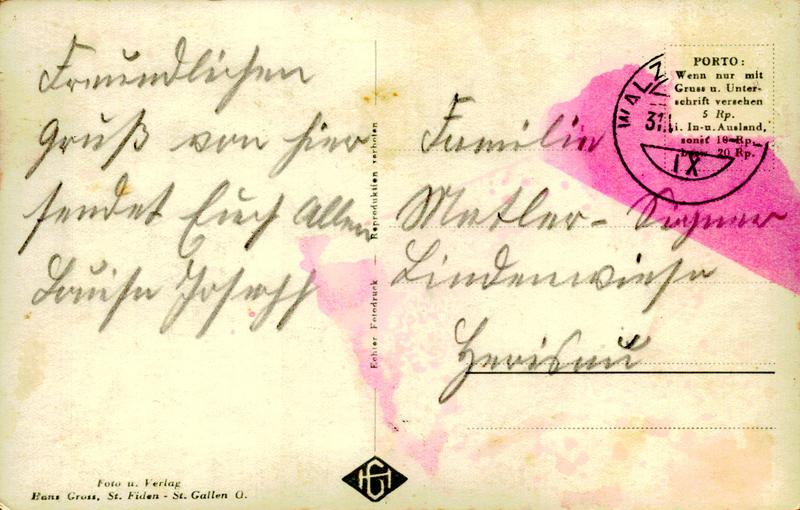 Freundlichen
Gruß von hier
sendet Euch Allen
Louise Joseph
Echter Fotodruck — Reproduktion verboten
Foto u. Verlag
Hans Gross, St. Fiden - St. Gallen O.
HG
PORTO:
Wenn nur mit
Gruss u. Unter-
schrift versehen
5 Rp.
i. In- u. Ausland,
sonst 10 Rp.
bezw. 20 Rp.
WALZ
31.
IX
Familie
Metler - Signer
Lindenwiese
Herisau